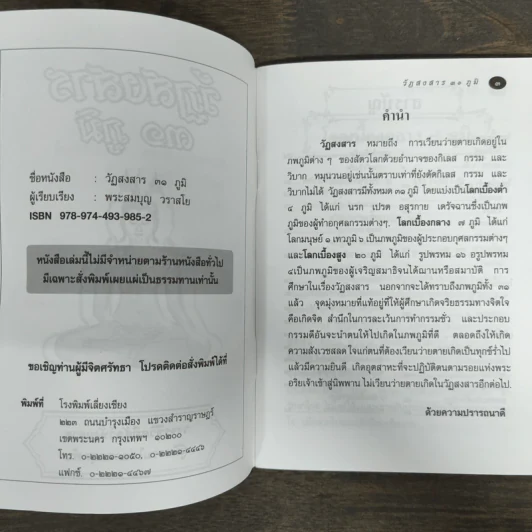 ชื่อหนังสือ : วัฏสงสาร ๓๑ ภูมิ
ผู้เรียบเรียง : พระสมบุญ วราสโย
ISBN 978-974-493-985-2
หนังสือเล่มนี้ไม่มีจำหน่ายตามร้านหนังสือทั่วไป
มีเฉพาะสั่งพิมพ์เผยแผ่เป็นธรรมทานเท่านั้น
ขอเชิญท่านผู้มีจิตศรัทธา โปรดติดต่อสั่งพิมพ์ได้ที่
พิมพ์ที่ โรงพิมพ์เลี่ยงเชียง
๒๒๓ ถนนบำรุงเมือง แขวงสำราญราษฎร์
เขตพระนคร กรุงเทพฯ ๑๐๒๐๐
โทร. ๐-๒๒๒๑-๑๐๕๐, ๐-๒๒๒๑-๔๔๔๖
แฟกซ์. ๐-๒๒๒๑-๔๔๖๗
วัฏสงสาร ๓๑ ภูมิ ๓
คำนำ
วัฏสงสาร หมายถึง การเวียนว่ายตายเกิดอยู่ใน
ภพภูมิต่าง ๆ ของสัตวโลกด้วยอำนาจของกิเลส กรรม และ
วิบาก หมุนวนอยู่เช่นนั้นตราบเท่าที่ยังตัดกิเลส กรรม และ
วิบากไม่ได้ วัฏสงสารมีทั้งหมด ๓๑ ภูมิ โดยแบ่งเป็นโลกเบื้องต่ำ
๔ ภูมิ ได้แก่ นรก เปรต อสุรกาย เดรัจฉานซึ่งเป็นภพ
ภูมิของผู้ทำอกุศลกรรมต่างๆ. โลกเบื้องกลาง ๗ ภูมิ ได้แก่
โลกมนุษย์ ๑ เทวภูมิ ๖ เป็นภพภูมิของผู้ประกอบกุศลกรรมต่างๆ
และโลกเบื้องสูง ๒๐ ภูมิ ได้แก่ รูปพรหม ๑๖ อรูปพรหม
๔เป็นภพภูมิของผู้เจริญสมาธิจนได้ฌานหรือสมาบัติ การ
ศึกษาในเรื่องวัฏสงสาร นอกจากจะได้ทราบถึงภพภูมิทั้ง ๓๑
แล้ว จุดมุ่งหมายที่แท้อยู่ที่ให้ผู้ศึกษาเกิดจริยธรรมทางจิตใจ
คือเกิดจิต สำนึกในการละเว้นการทำกรรมชั่ว และประกอบ
กรรมดีอันจะนำตนให้ไปเกิดในภพภูมิที่ดี ตลอดถึงให้เกิด
ความสังเวชสลด ใจแก่ตนที่ต้องเวียนว่ายตายเกิดเป็นทุกข์ร่ำไป
แล้วมีความยินดี เกิดอุตสาหะที่จะปฏิบัติตนตามรอยแห่งพระ
อริยเจ้าเข้าสู่นิพพาน ไม่เวียนว่ายตายเกิดในวัฏสงสารอีกต่อไป.
ด้วยความปรารถนาดี